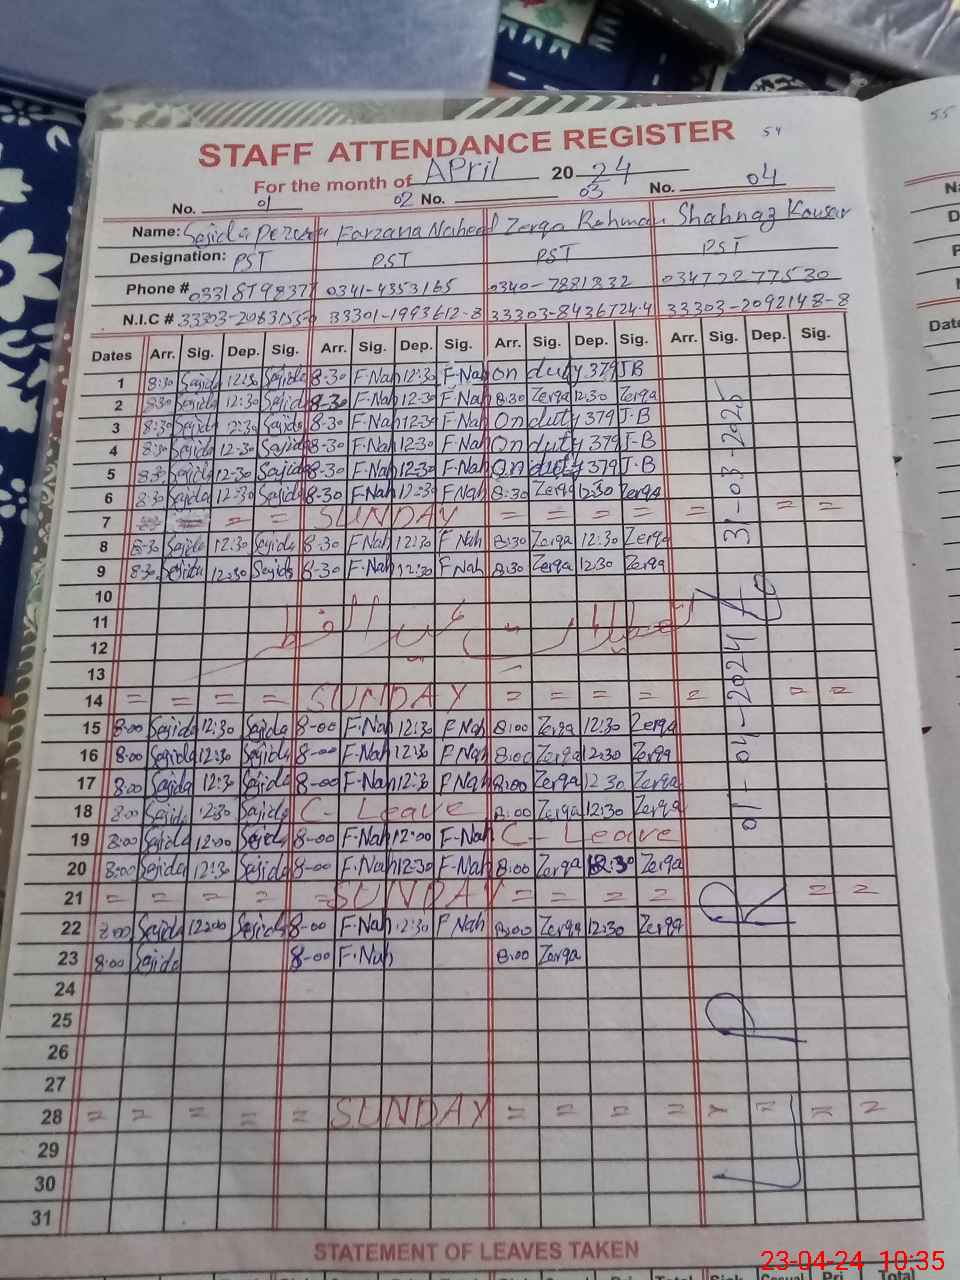 54
55
STAFF ATTENDANCE REGISTER
For the month of APril 2024
No. 01 02 No. 03 No. 04
Name: Sajida Farzana Naheed Zerqa Rehman Shahnaz Kousar
Designation: PST PST PST PST
Phone # 0341-4353165 0340-7881332 03472277530
N.I.C # 33301-1993612-8 33303-8436724-4 33303-2092148-8
Dates Arr. Sig. Dep. Sig. Arr. Sig. Dep. Sig. Arr. Sig. Dep. Sig. Arr. Sig. Dep. Sig.
1 8:30 Sajida 12:30 Sajida 8-30 F-Nah 12:30 F-Nah on duty 379 JB
2 8:30 Sajida 12:30 Sajida 8-30 F-Nah 12-30 F-Nah 8:30 Zerqa 12:30 Zerqa
3 8:30 Sajida 12:30 Sajida 8-30 F-Nah 12-30 F-Nah On duty 379 J-B
4 8:30 Sajida 12-30 Sajida 8-30 F-Nah 12-30 F-Nah On duty 379 J-B
5 8:30 Sajida 12-30 Sajida 8-30 F-Nah 12-30 F-Nah On duty 379 J-B
6 8:30 Sajida 12:30 Sajida 8-30 F-Nah 12:30 F Nah 8:30 Zerqa 12:30 Zerqa
7 = = SUNDAY = = = = = = =
8 8:30 Sajida 12:30 Sajida 8-30 F Nah 12:30 F Nah 8:30 Zerqa 12:30 Zerqa
9 8:30 Sajida 12:30 Sajida 8-30 F-Nah 12:30 F Nah 8:30 Zerqa 12:30 Zerqa
10
11 تعطیلات عید الفطر
12
13
14 = = = = SUNDAY = = = = = = =
15 8:00 Sajida 12:30 Sajida 8-00 F-Nah 12:30 F Nah 8:00 Zerqa 12:30 Zerqa
16 8:00 Sajida 12:30 Sajida 8-00 F-Nah 12:30 F Nah 8:00 Zerqa 12:30 Zerqa
17 8:00 Sajida 12:30 Sajida 8-00 F-Nah 12:30 F Nah 8:00 Zerqa 12:30 Zerqa
18 8:00 Sajida 12:30 Sajida C- Leave 8:00 Zerqa 12:30 Zerqa
19 8:00 Sajida 12:00 Sajida 8-00 F-Nah 12:00 F-Nah C- Leave
20 8:00 Sajida 12:30 Sajida 8-00 F-Nah 12:30 F-Nah 8:00 Zerqa 12:30 Zerqa
21 = = = = = SUNDAY = = = = = =
22 8:00 Sajida 12:00 Sajida 8-00 F-Nah 12:30 F Nah 8:00 Zerqa 12:30 Zerqa
23 8:00 Sajida 8-00 F-Nah 8:00 Zerqa
24
25
26
27
28 = = = = = SUNDAY = = = = = = = =
29
30
31
01-04-2024 To 31-03-2025
STATEMENT OF LEAVES TAKEN
Total
23-04-24 10:35